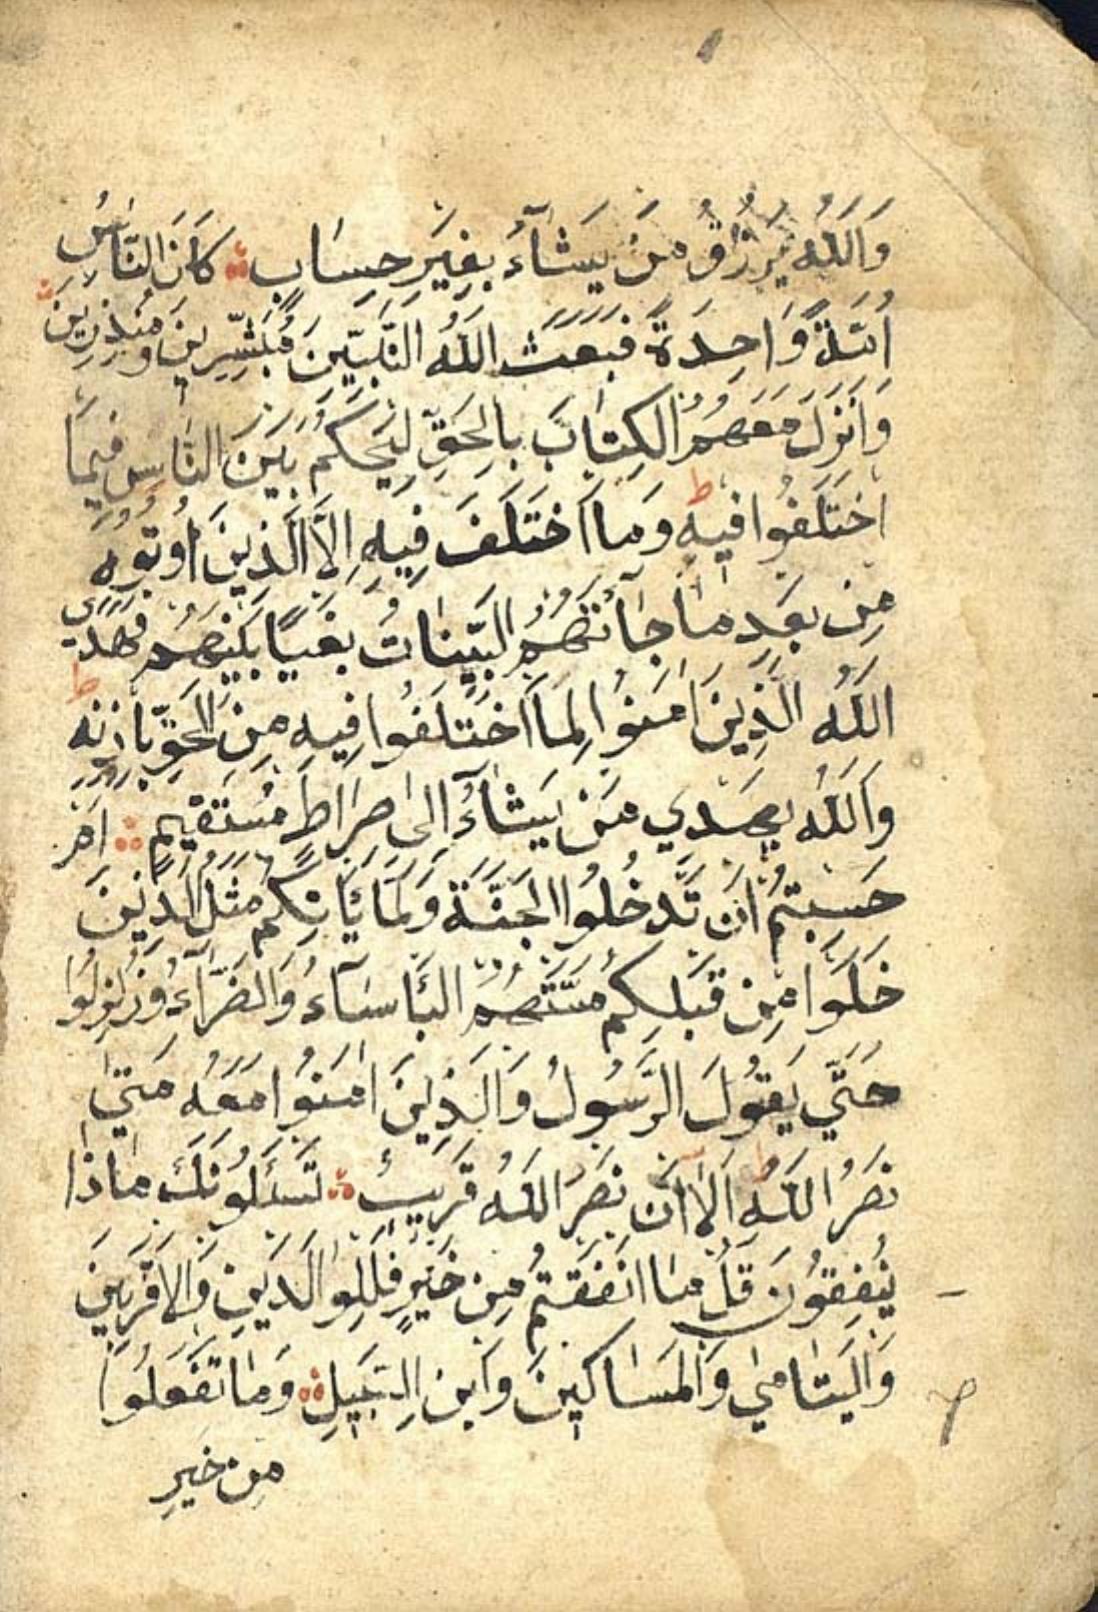 وَاللّٰهُ يَرْزُقُ مَنْ يَشَآءُ بِغَيْرِ حِسَابٍ كَانَ النَّاسُ
اُمَّةً وَاحِدَةً فَبَعَثَ اللّٰهُ النَّبِيّٖنَ مُبَشِّرِينَ وَمُنْذِرِينَ
وَاَنْزَلَ مَعَهُمُ الْكِتَابَ بِالْحَقِّ لِيَحْكُمَ بَيْنَ النَّاسِ فِيمَا
اخْتَلَفُوا فِيهِ ط وَمَا اخْتَلَفَ فِيهِ اِلَّا الَّذِينَ اُوتُوهُ
مِنْ بَعْدِ مَا جَآءَتْهُمُ الْبَيِّنَاتُ بَغْيًا بَيْنَهُمْ فَهَدَى
اللّٰهُ الَّذِينَ اٰمَنُوا لِمَا اخْتَلَفُوا فِيهِ مِنَ الْحَقِّ بِاِذْنِهِ ط
وَاللّٰهُ يَهْدِي مَنْ يَشَآءُ اِلٰى صِرَاطٍ مُسْتَقِيمٍ اَمْ
حَسِبْتُمْ اَنْ تَدْخُلُوا الْجَنَّةَ وَلَمَّا يَأْتِكُمْ مَثَلُ الَّذِينَ
خَلَوْا مِنْ قَبْلِكُمْ مَسَّتْهُمُ الْبَأْسَآءُ وَالضَّرَّآءُ وَزُلْزِلُوا
حَتّٰي يَقُولَ الرَّسُولُ وَالَّذِينَ اٰمَنُوا مَعَهُ مَتٰي
نَصْرُ اللّٰهِ ط اَلَا اِنَّ نَصْرَ اللّٰهِ قَرِيبٌ يَسْئَلُونَكَ مَاذَا
يُنْفِقُونَ قُلْ مَا اَنْفَقْتُمْ مِنْ خَيْرٍ فَلِلْوَالِدَيْنِ وَالْاَقْرَبِينَ
وَالْيَتَامٰي وَالْمَسَاكِينَ وَابْنِ السَّبِيلِ وَمَا تَفْعَلُوا
مِنْ خَيْرٍ